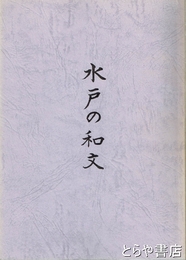 水戸の和文
©とらや書店